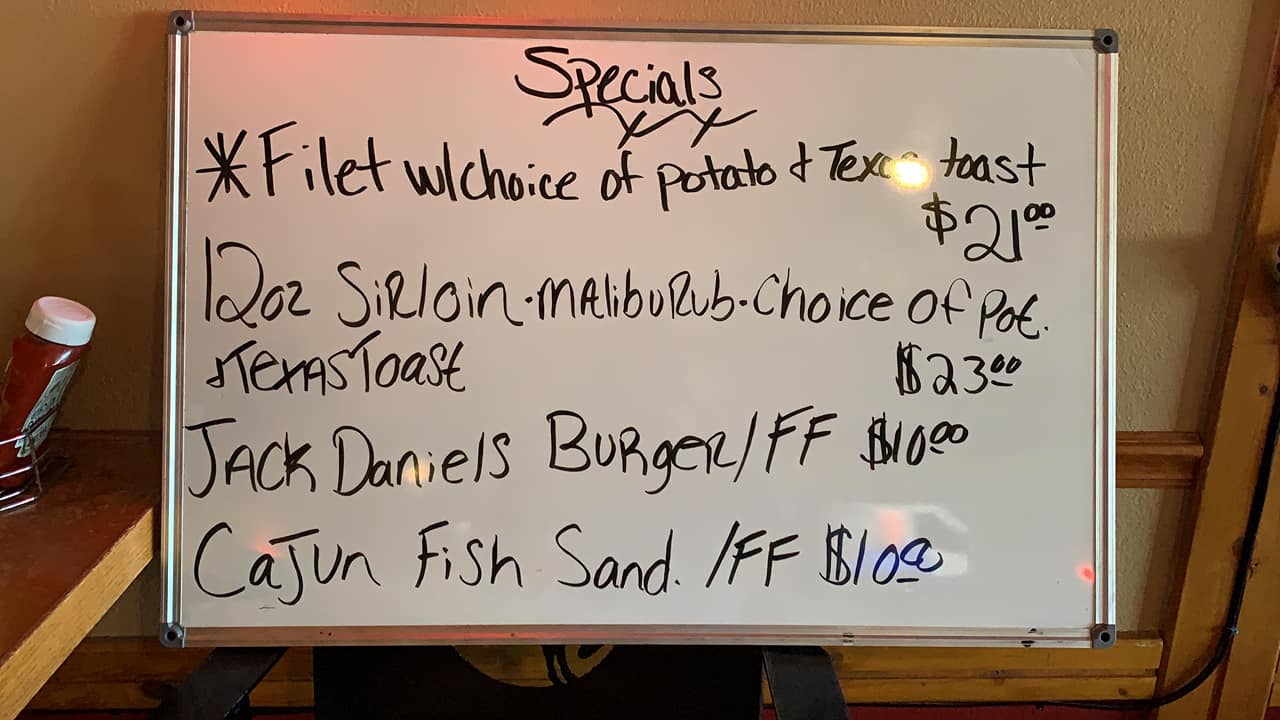 Specials
*Filet w/choice of potato & Texas toast
$21.00
12oz SiRloin·MAlibuRub·Choice Of Pot.
&TexAsToast $23.00
JAck Daniels BuRgeR/FF $10.00
CaJun Fish Sand. /FF $10.00